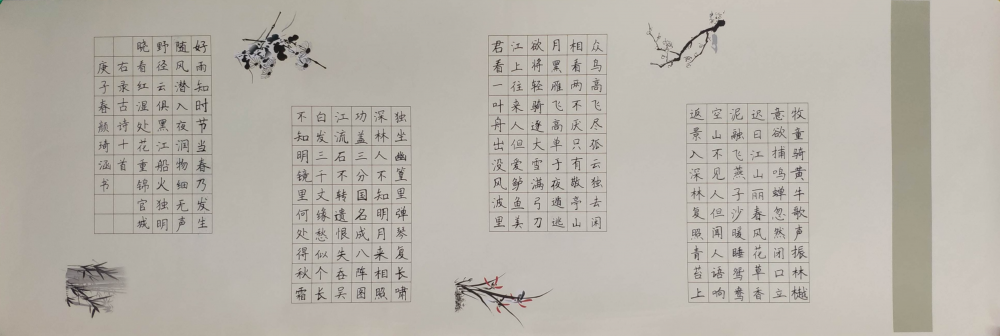 牧童骑黄牛歌声振林樾
意欲捕鸣蝉忽然闭口立
迟日江山丽春风花草香
泥融飞燕子沙暖睡鸳鸯
空山不见人但闻人语响
返景入深林复照青苔上
众鸟高飞尽孤云独去闲
相看两不厌只有敬亭山
月黑雁飞高单于夜遁逃
欲将轻骑逐大雪满弓刀
江上往来人但爱鲈鱼美
君看一叶舟出没风波里
独坐幽篁里弹琴复长啸
深林人不知明月来相照
功盖三分国名成八阵图
江流石不转遗恨失吞吴
白发三千丈缘愁似个长
不知明镜里何处得秋霜
好雨知时节当春乃发生
随风潜入夜润物细无声
野径云俱黑江船火独明
晓看红湿处花重锦官城
右录古诗十首
庚子春颜琦涵书